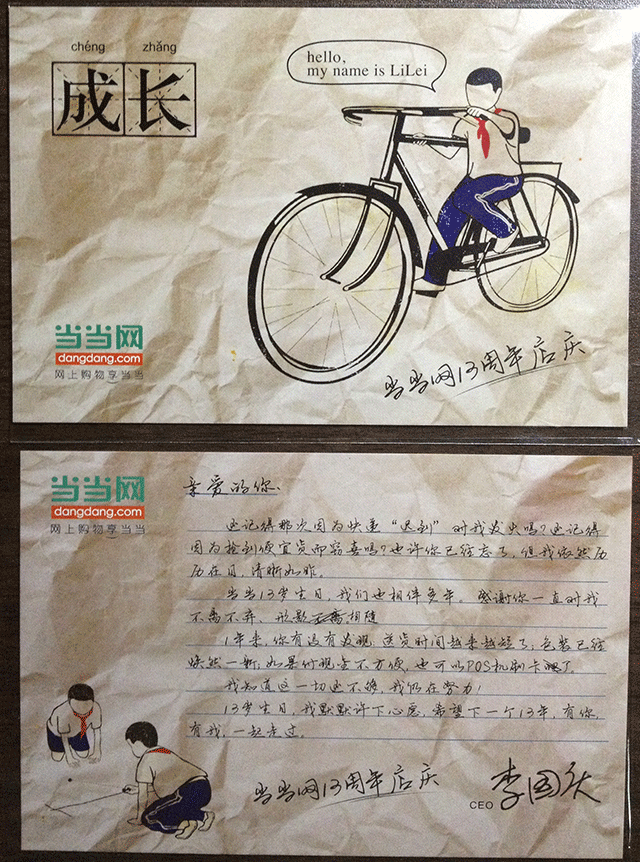 chéng zhǎng
成长
hello,
my name is LiLei
当当网
dangdang.com
网上购物享当当
当当网13周年店庆
当当网
dangdang.com
网上购物享当当
亲爱的你、
还记得那次因为快递“迟到”对我发火吗?还记得
因为抢到便宜货而窃喜吗?也许你已经忘了,但我依然历
历在目,清晰如昨。
当当13岁生日,我们也相伴多年。感谢你一直对我
不离不弃、形影相随
1年来,你有没有发现,送货时间越来越短了,包装已经
焕然一新,如果付现金不方便,也可以POS机刷卡了
我知道这一切还不够,我仍在努力!
13岁生日,我默默许下心愿,希望下一个13年,有你,
有我,一起走过。
当当网13周年店庆
CEO 李国庆